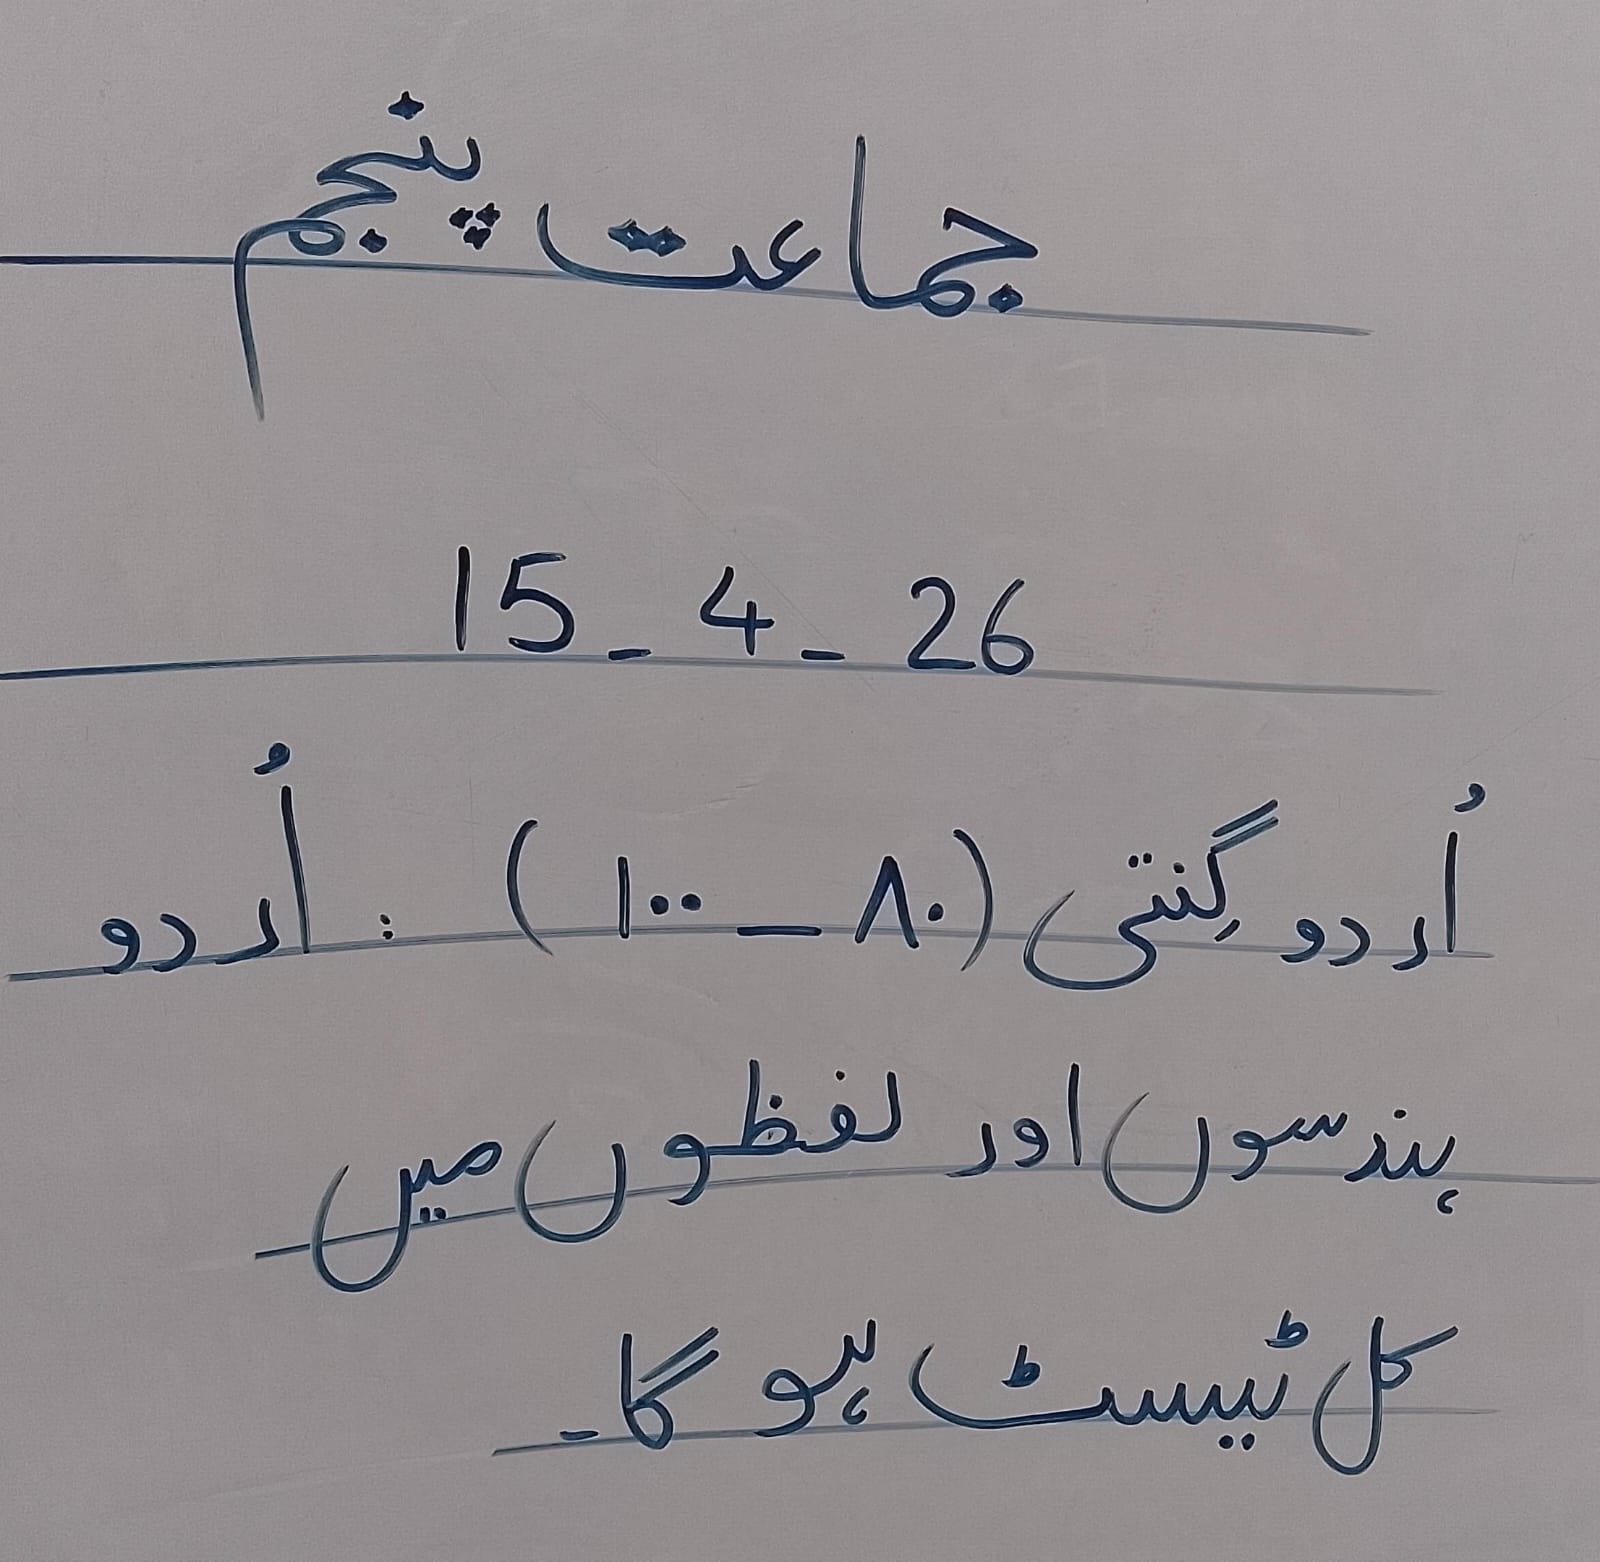 جماعت پنجم
15-4-26
اُردو گِنتی (۸۰ - ۱۰۰) : اُردو
ہندسوں اور لفظوں میں
کل ٹیسٹ ہو گا۔